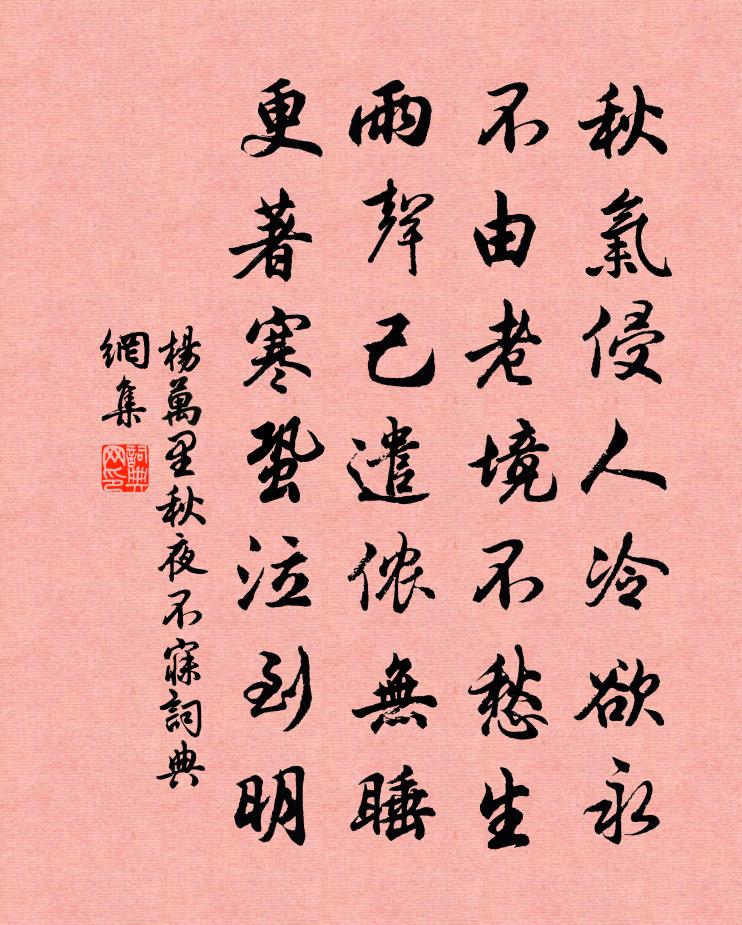 秋氣侵人冷欲氷
不由老境不愁生
雨聲已遣侬無睡
更著寒蛩泣到明
楊萬里秋夜不寐詞典
網集
詞典
网印